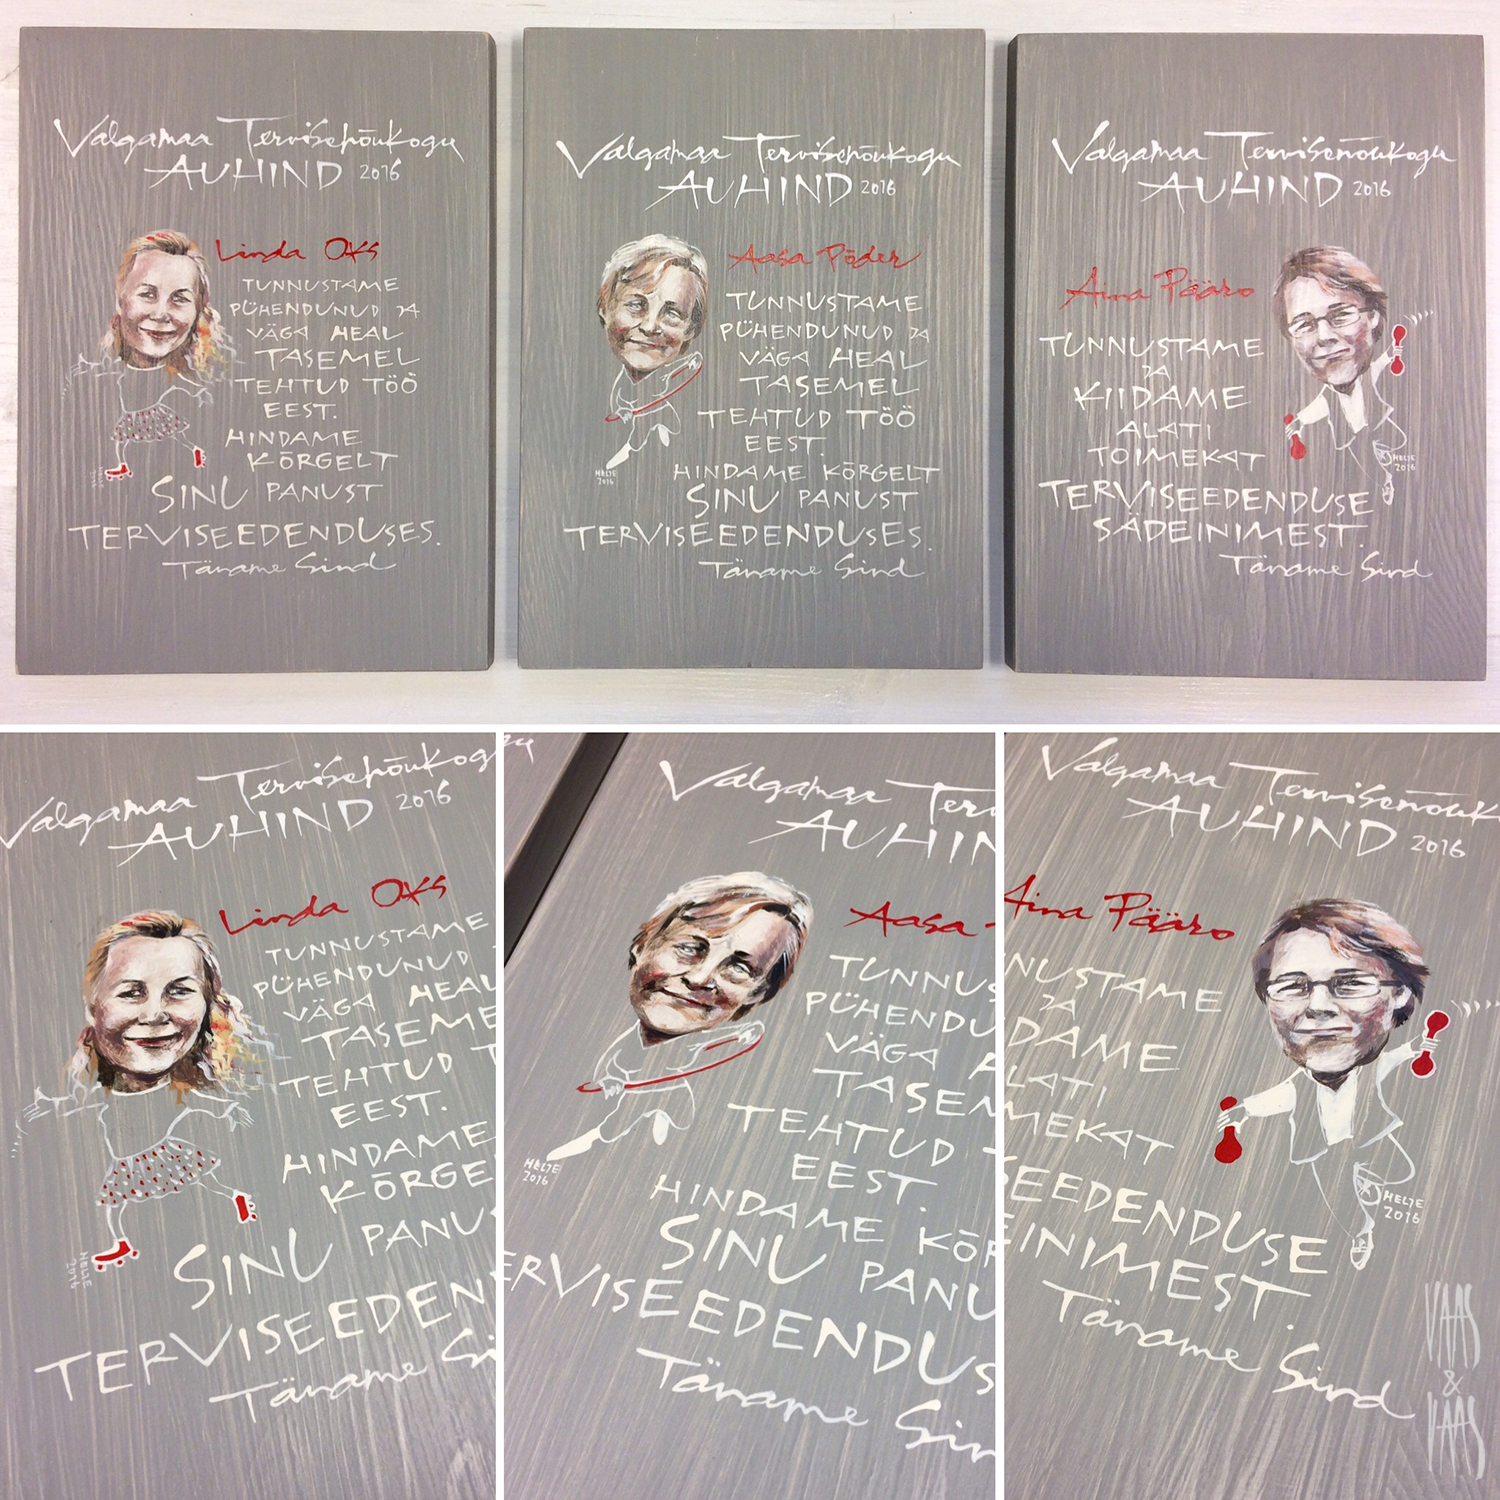 Valgamaa Tervisenõukogu
AUHIND 2016
Linda Oks
TUNNUSTAME
PÜHENDUNUD JA
VÄGA HEAL
TASEMEL
TEHTUD TÖÖ
EEST.
HINDAME
KÕRGELT
SINU PANUST
TERVISEEDENDUSES.
Täname Sind
HELJE
2016
Valgamaa Tervisenõukogu
AUHIND 2016
Aasa Põder
TUNNUSTAME
PÜHENDUNUD JA
VÄGA HEAL
TASEMEL
TEHTUD TÖÖ
EEST.
HINDAME KÕRGELT
SINU PANUST
TERVISEEDENDUSES.
Täname Sind
HELJE
2016
Valgamaa Tervisenõukogu
AUHIND 2016
Aina Pääro
TUNNUSTAME
JA
KIIDAME
ALATI
TOIMEKAT
TERVISEEDENDUSE
SÄDEINIMEST.
Täname Sind
HELJE
2016
Valgamaa Tervisenõukogu
AUHIND 2016
Linda Oks
TUNNUSTAME
PÜHENDUNUD
VÄGA HEAL
TASEME
TEHTUD T
EEST.
HINDAME
KÕRGE
SINU PANUS
TERVISEEDEN
Täname Si
HELJE
2016
Valgamaa Terv
AUHIN
Aasa
TUNNUS
PÜHENDU
VÄGA
TASEM
TEHTUD
EEST.
HINDAME KÕR
SINU PANU
ERVISEEDENDUS
Täname Sin
HELJE
2016
Valgamaa Tervisenõuk
AUHIND 2016
Aina Pääro
NUSTAME
JA
DAME
LATI
MEKAT
SEEDENDUSE
EINIMEST.
Täname Sind
HELJE
2016
VAAS
&
VAAS